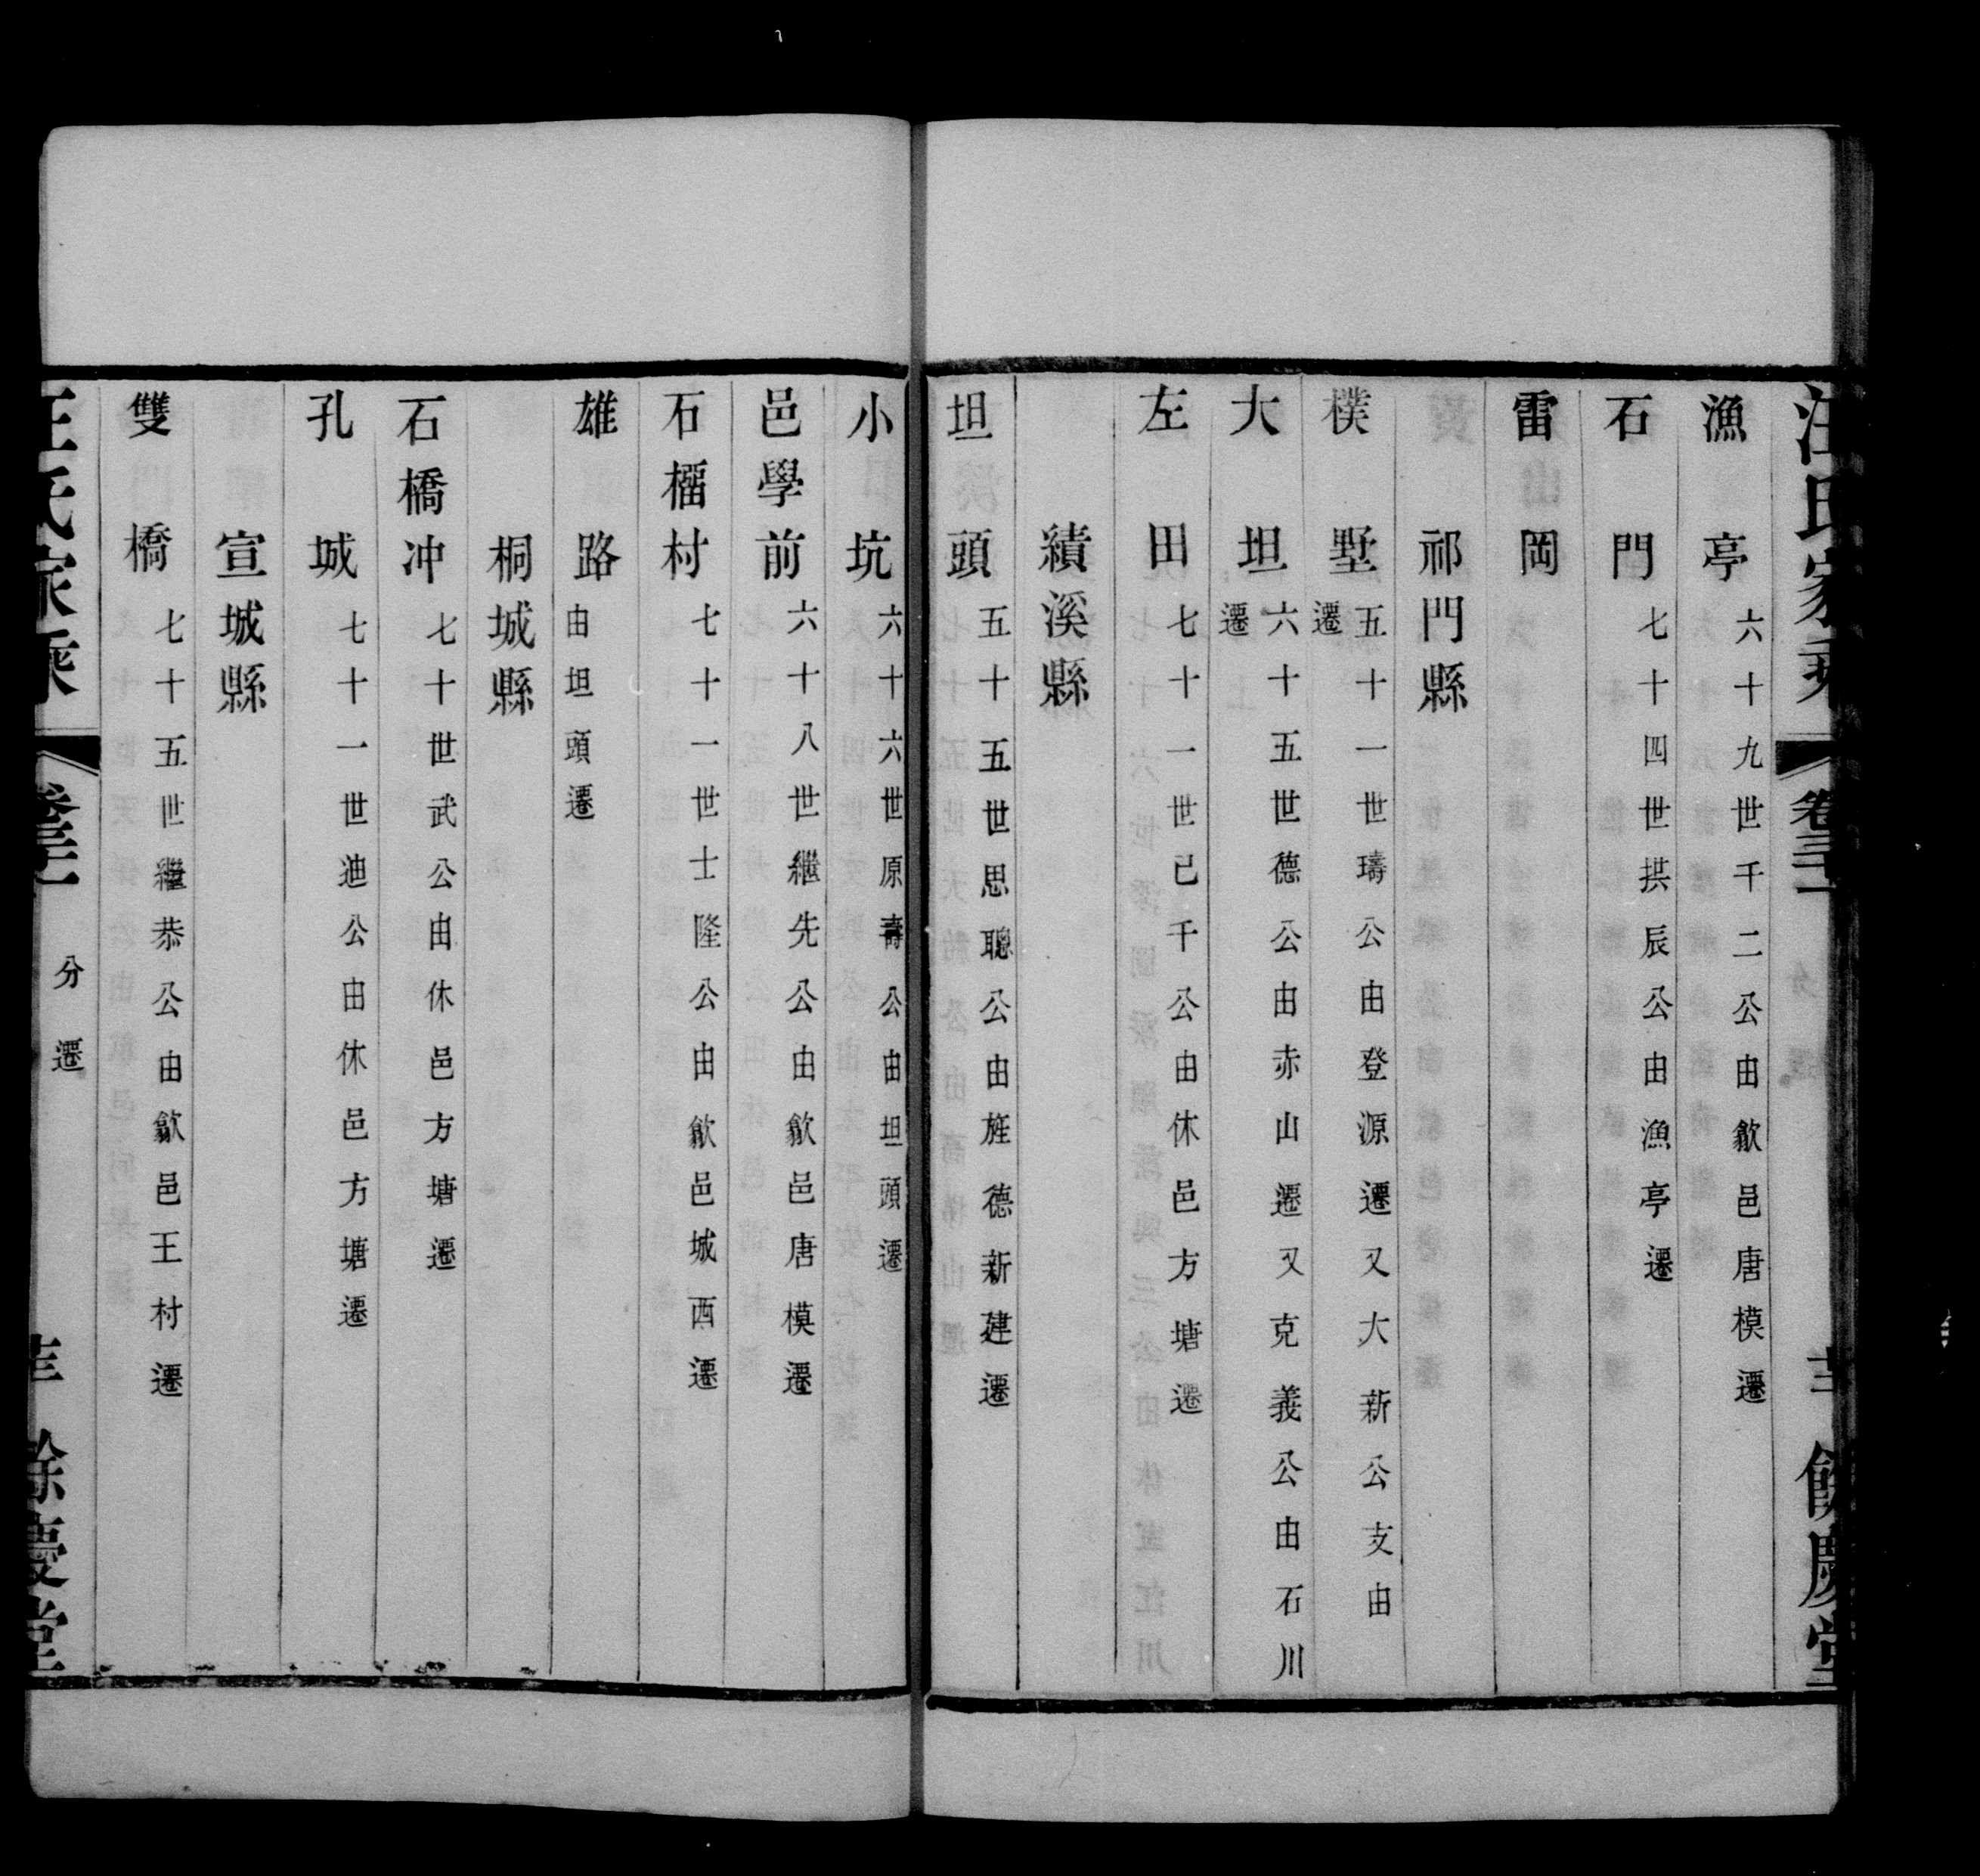 汪氏家乘 卷三十一 餘慶堂
漁亭 六十九世千二公由歙邑唐模遷
石門 七十四世拱辰公由漁亭遷
雷岡
祁門縣
樸墅 五十一世璹公由登源遷又大新公支由遷
大坦 六十五世德公由赤山遷又克義公由石川遷
左田 七十一世已千公由休邑方塘遷
績溪縣
坦頭 五十五世思聰公由旌德新建遷
小坑 六十六世原壽公由坦頭遷
邑學前 六十八世繼先公由歙邑唐模遷
石橊村 七十一世士隆公由歙邑城西遷
雄路 由坦頭遷
桐城縣
石橋冲 七十世武公由休邑方塘遷
孔城 七十一世迪公由休邑方塘遷
宣城縣
雙橋 七十五世繼恭公由歙邑王村遷
汪氏家乘 卷三十一 分遷 餘慶堂